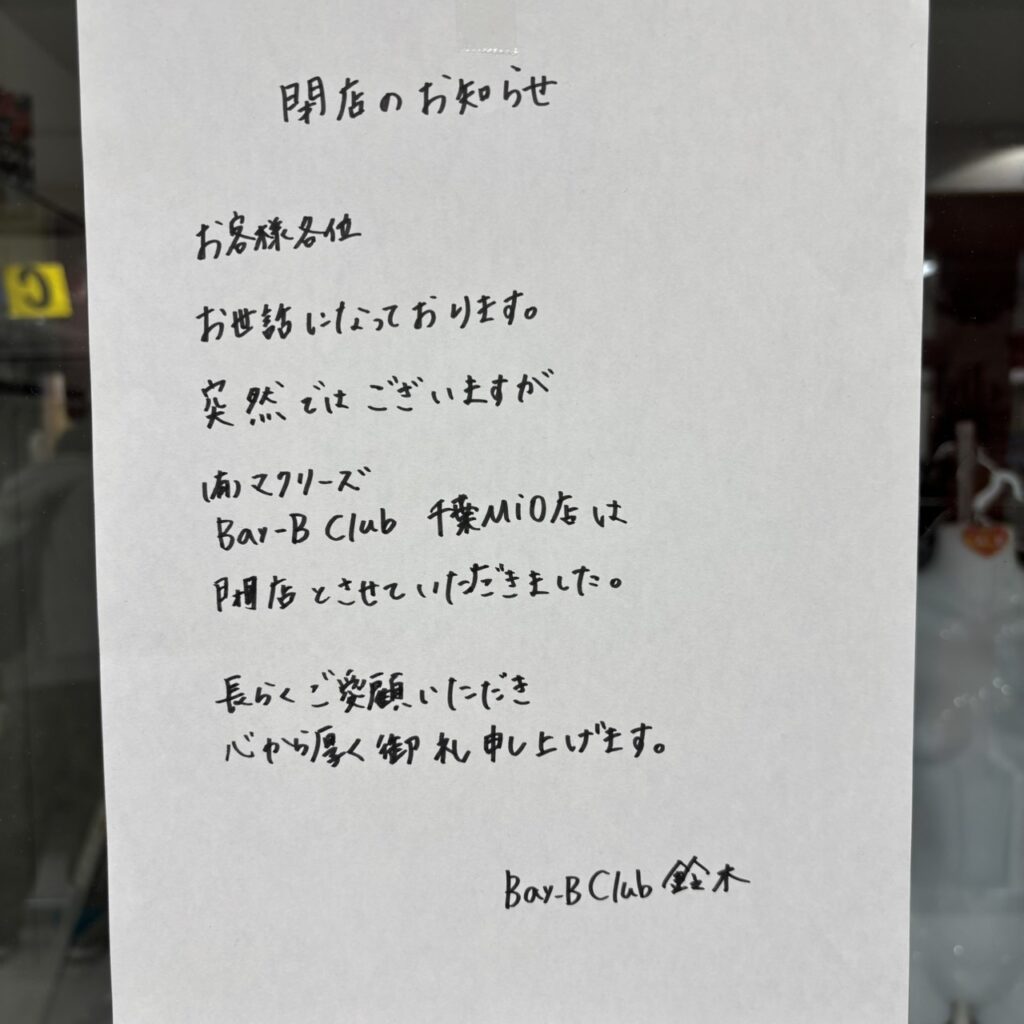 閉店のお知らせ
お客様各位
お世話になっております。
突然ではございますが
(有)マクリーズ
Bay-B Club 千葉MiO店は
閉店とさせていただきました。
長らくご愛顧いただき
心から厚く御礼申し上げます。
Bay-B Club 鈴木